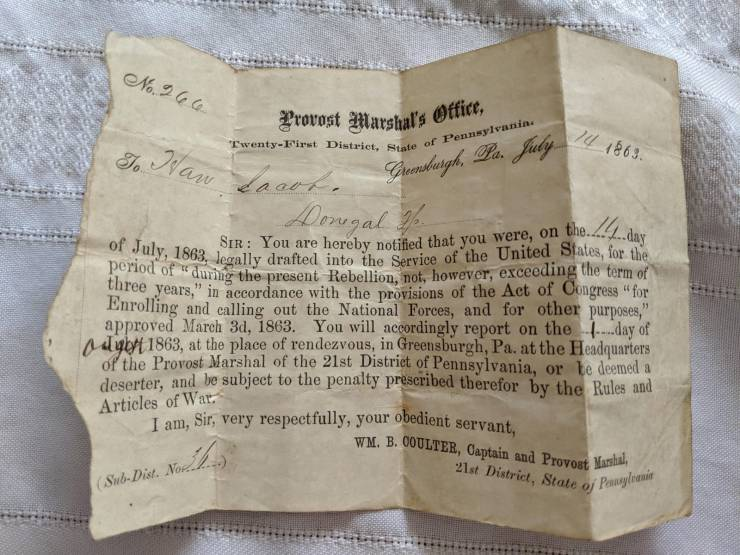 No. 266
Provost Marshal's Office,
Twenty-First District, State of Pennsylvania.
Greensburgh, Pa. July 14 1863.
To Haw Jacob.
Donegal Tp.
SIR: You are hereby notified that you were, on the 14 day
of July, 1863, legally drafted into the Service of the United States, for the
period of "during the present Rebellion, not, however, exceeding the term of
three years," in accordance with the provisions of the Act of Congress "for
Enrolling and calling out the National Forces, and for other purposes,"
approved March 3d, 1863. You will accordingly report on the 1 day of
August 1863, at the place of rendezvous, in Greensburgh, Pa. at the Headquarters
of the Provost Marshal of the 21st District of Pennsylvania, or be deemed a
deserter, and be subject to the penalty prescribed therefor by the Rules and
Articles of War.
I am, Sir, very respectfully, your obedient servant,
WM. B. COULTER, Captain and Provost Marshal,
21st District, State of Pennsylvania
(Sub-Dist. No. 36)